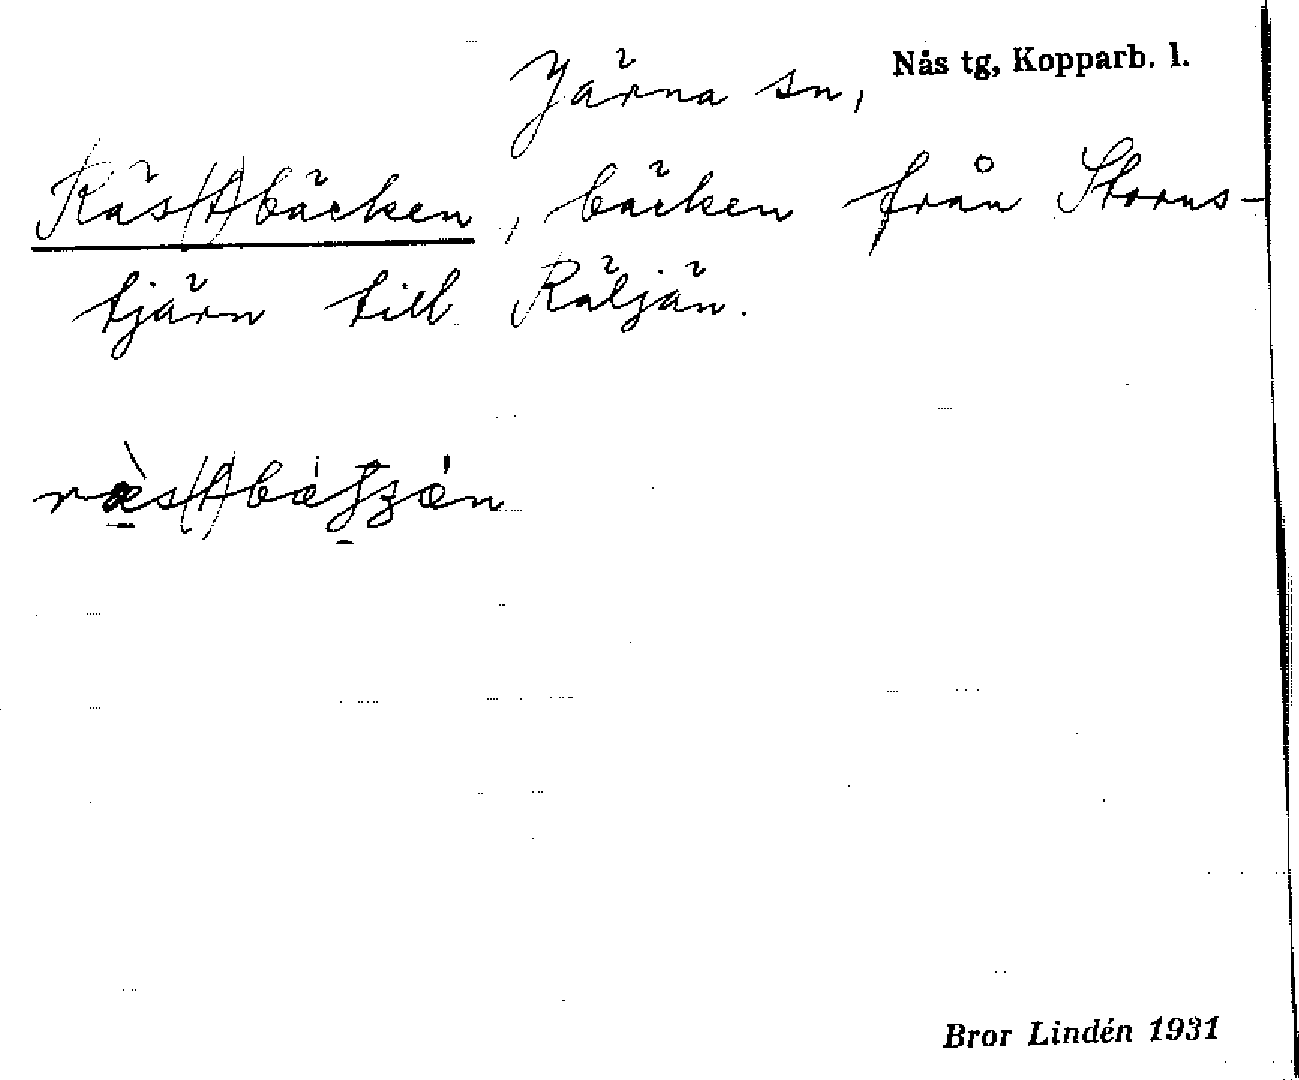 Järna sn, Nås tg, Kopparb. l.
Räs(t)bäcken, bäcken från Storns-
tjärn till Räljän.
Bror Lindén 1931